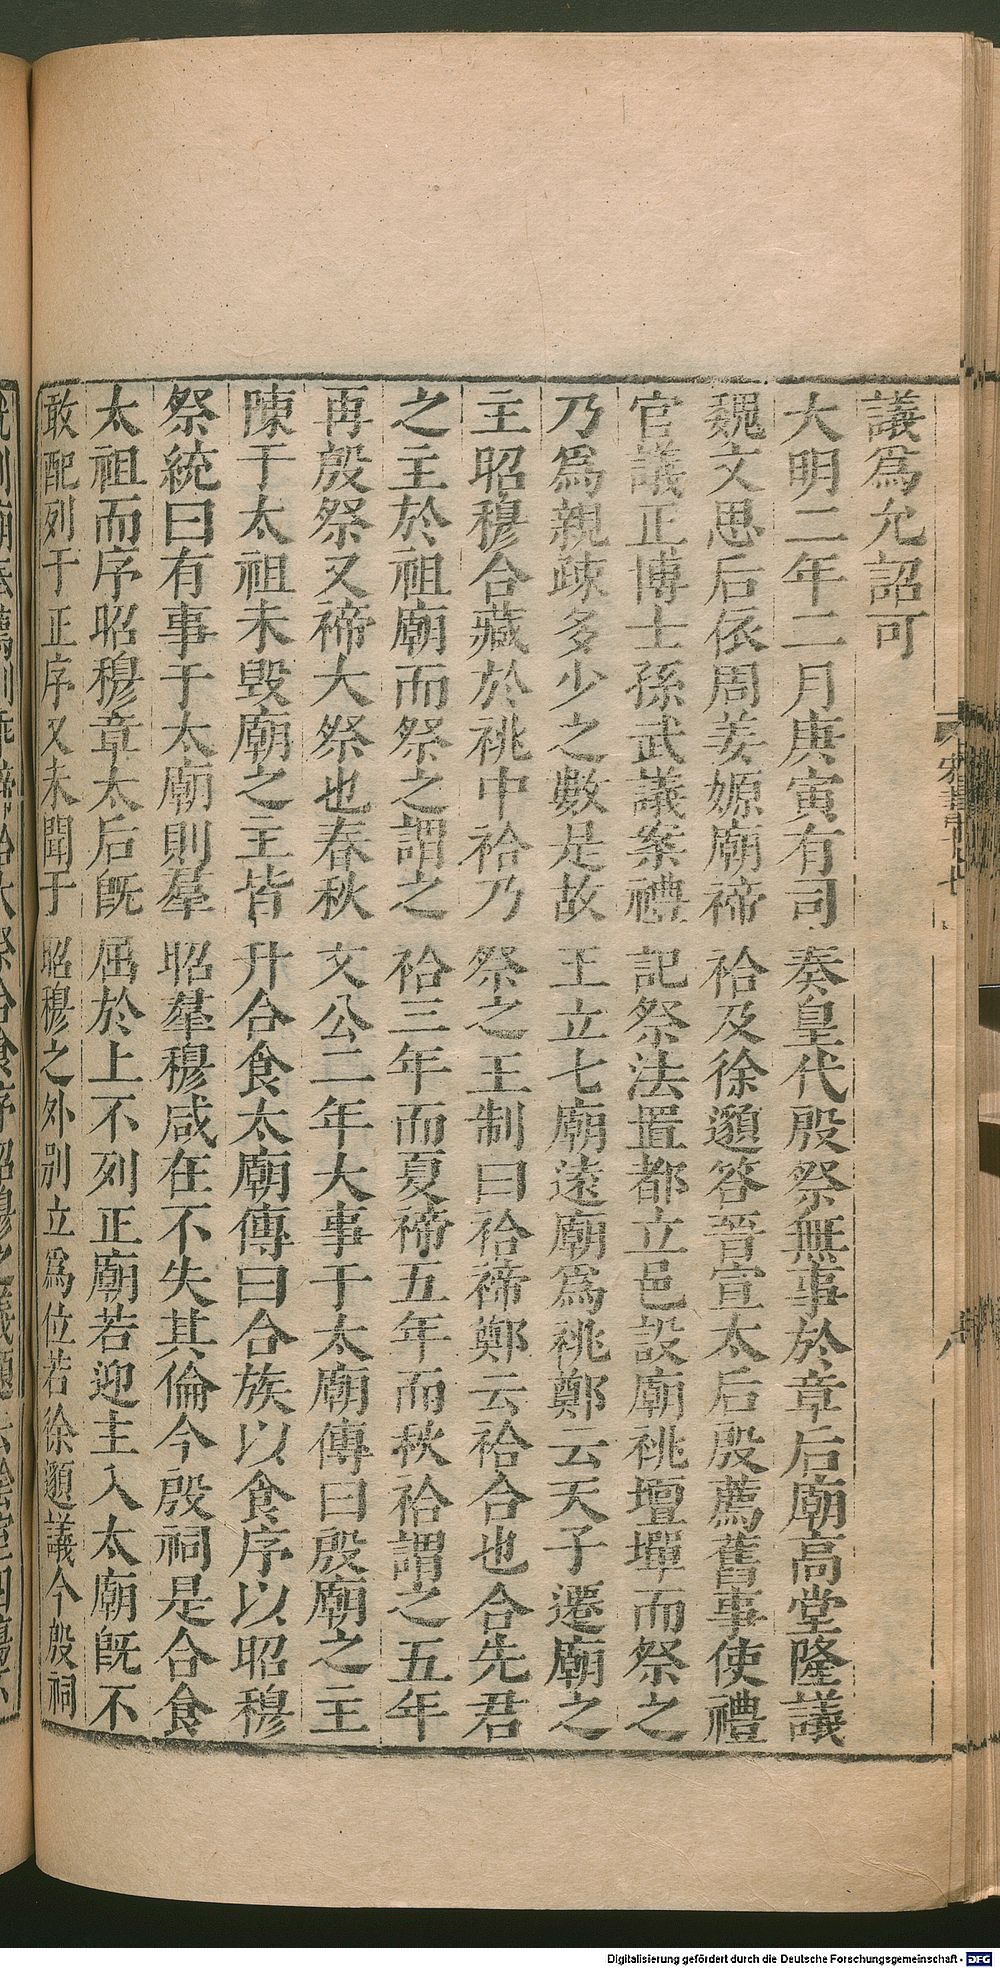 議爲允詔可
大明二年二月庚寅有司奏皇代殷祭無事於章后廟高堂隆議
魏文思后依周姜嫄廟禘祫及徐邈答晉宣太后殷薦舊事使禮
官議正博士孫武議案禮記祭法置都立邑設廟祧壇墠而祭之
乃爲親疎多少之數是故王立七廟遠廟爲祧鄭云天子遷廟之
主昭穆合藏於祧中祫乃祭之王制曰祫禘鄭云祫合也合先君
之主於祖廟而祭之謂之祫三年而夏禘五年而秋祫謂之五年
再殷祭又禘大祭也春秋文公二年大事于太廟傳曰殷廟之主
陳于太祖未毀廟之主皆升合食太廟傳曰合族以食序以昭穆
祭統曰有事于太廟則羣昭羣穆咸在不失其倫今殷祠是合食
太祖而序昭穆章太后旣屈於上不列正廟若迎主入太廟旣不
敢配列于正序又未聞于昭穆之外別立爲位若徐邈議今殷祠
Digitalisierung gefördert durch die Deutsche Forschungsgemeinschaft - DFG